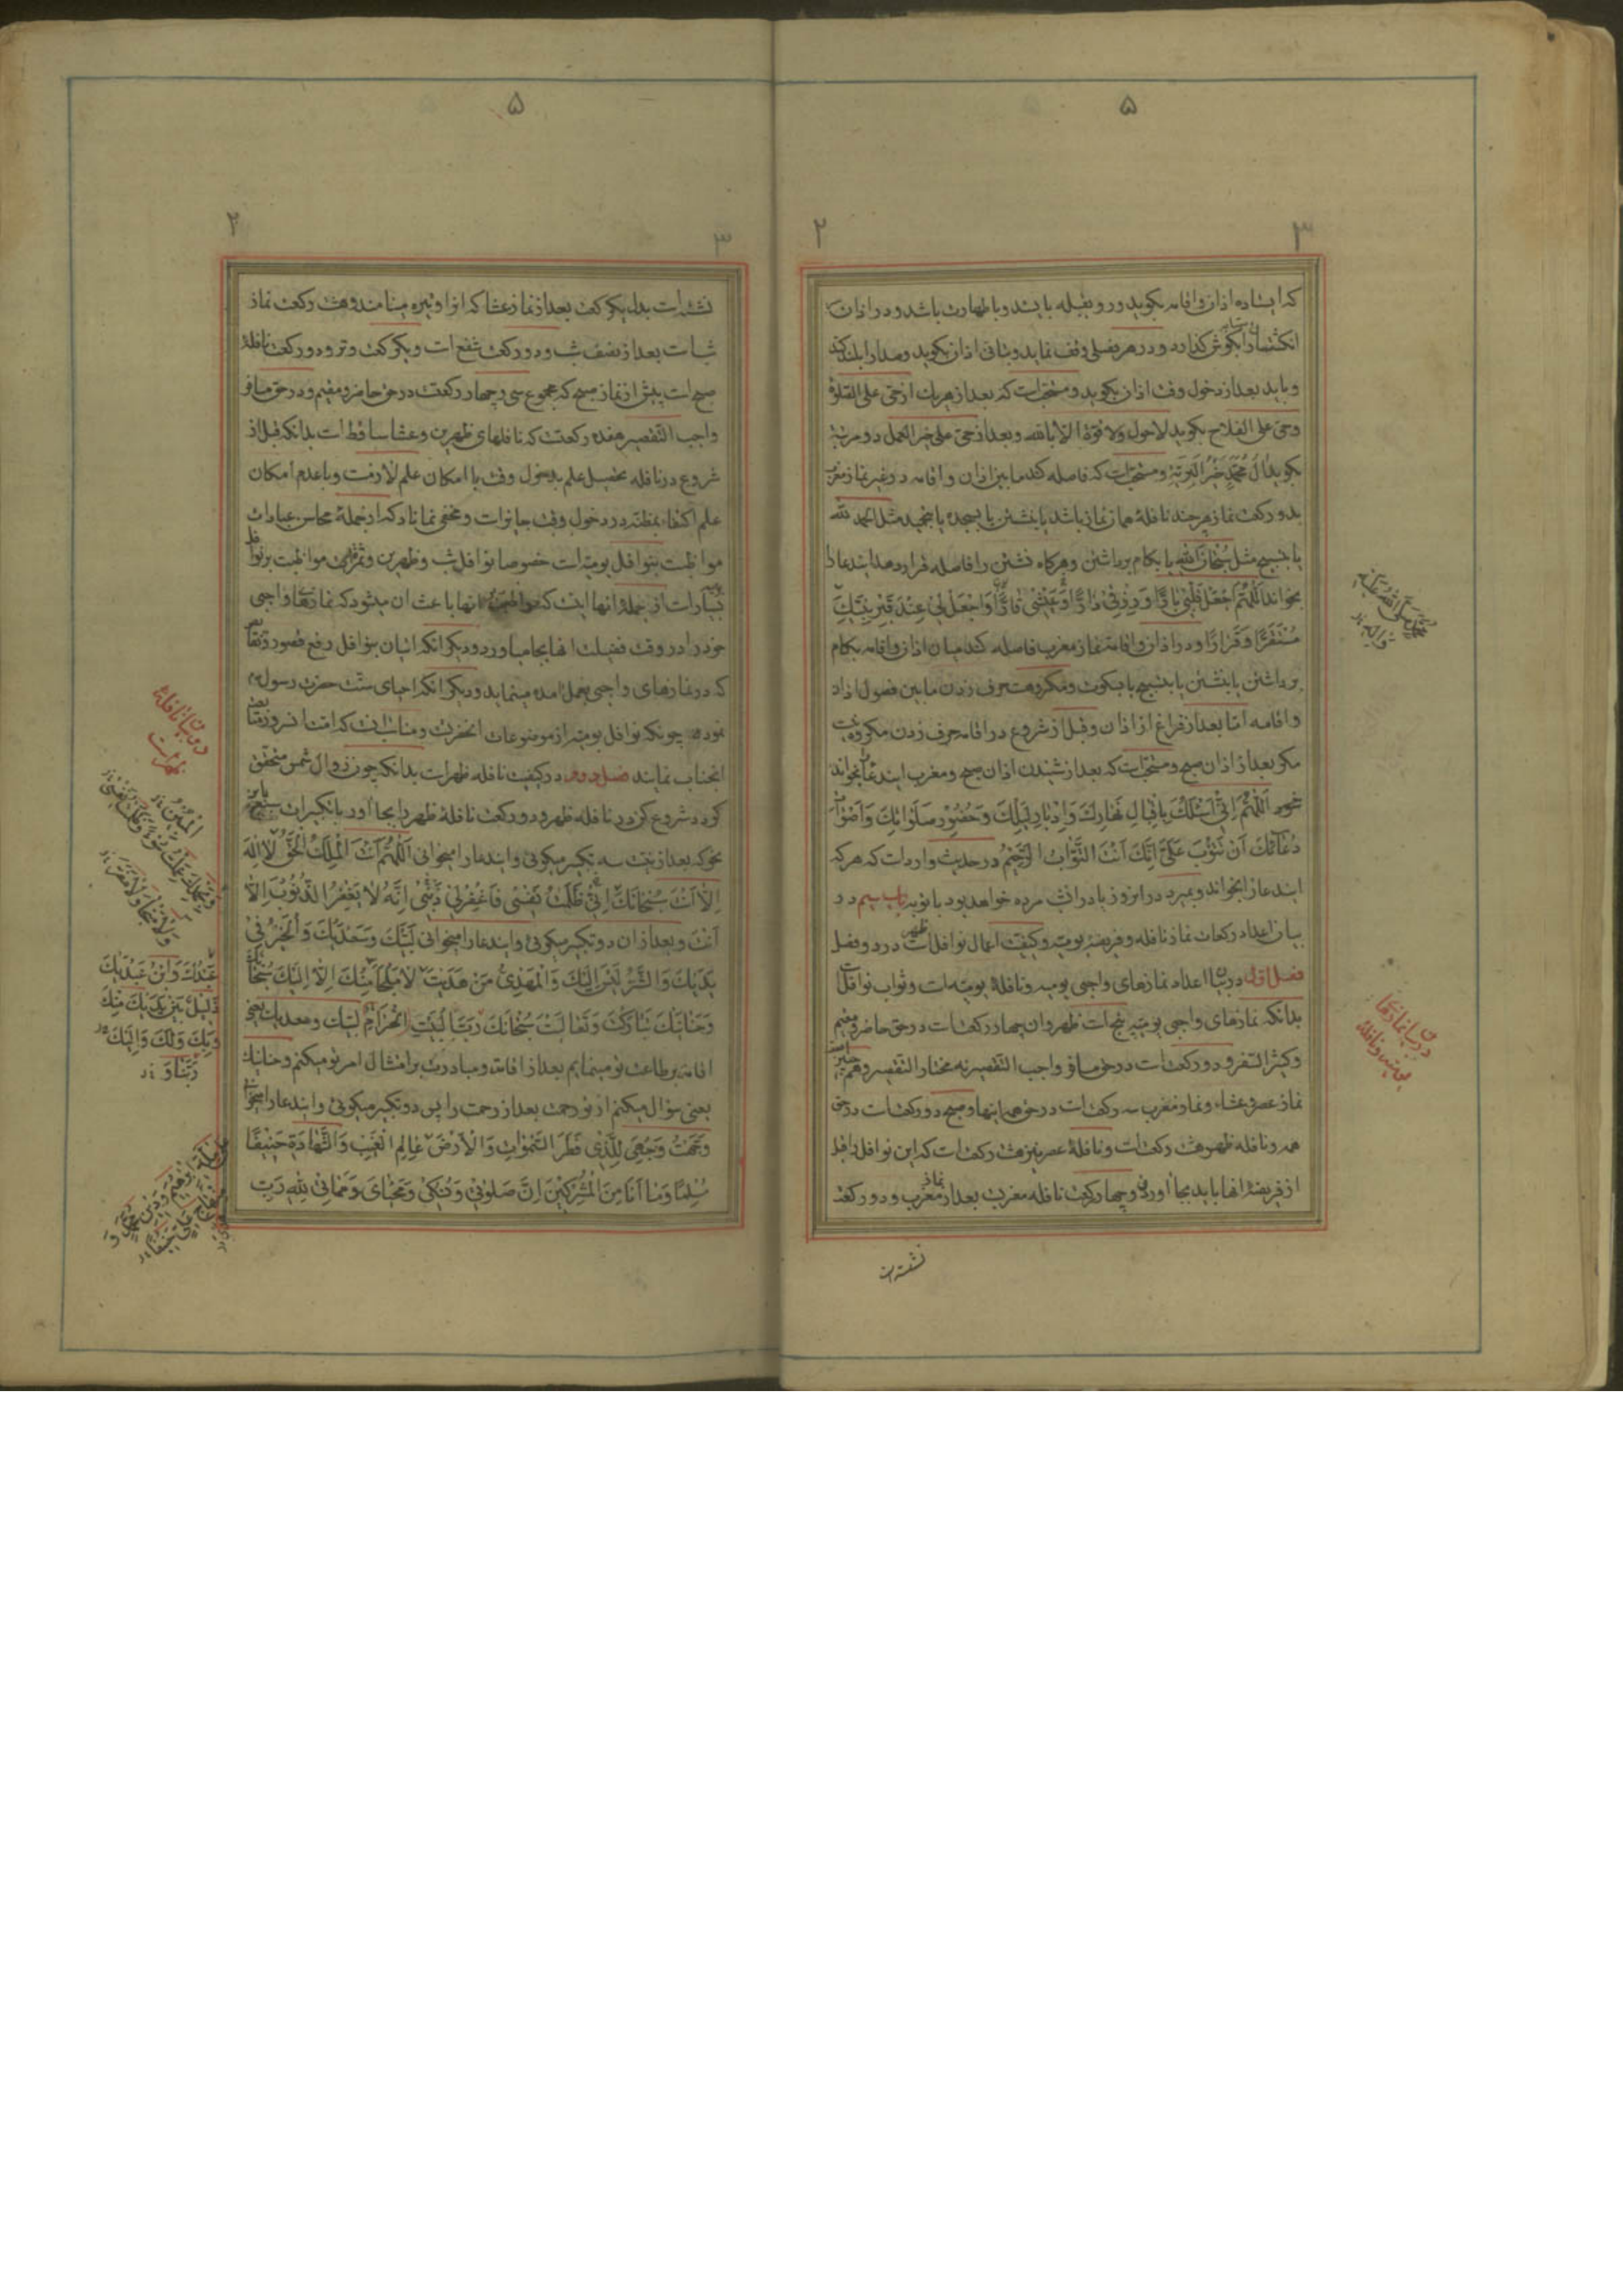 ۵
۲
۳
که ایستاده اذان و اقامه بگوید و رو بقبله باشد و با طهارت باشد و در اذان
انگشتها را بگوش گذارد و در هر فصلی وقف نماید و بتأنی اذان بگوید و صدا را بلند کند
و باید بعد از دخول وقت اذان بگوید و مستحب است که بعد از هر یک از حی علی الصلوة
و حی علی الفلاح بگوید لا حول ولا قوة الا بالله و بعد از حی علی خیر العمل دو مرتبه
بگوید آلُ مُحَمَّدٍ خَیْرُ الْبَرِیَّةِ و مستحب است که فاصله کند ما بین اذان و اقامه در غیر نماز مغرب
بدو رکعت نماز هر چند نافلهٔ همان نماز باشد یا بنشستن یا بسجده یا بتحمید مثل الحمد لله
یا بتسبیح مثل سُبْحانَ اللهِ یا بگام برداشتن و هر گاه نشستن را فاصله قرار دهد ایندعا را
بخواند اَللّهُمَّ اجْعَلْ قَلْبی بارًّا وَ رِزْقی دارًّا وَ عَیْشی قارًّا وَ اجْعَلْ لی عِنْدَ قَبْرِ نَبِیِّکَ
مُسْتَقَرًّا وَ قَرارًا و در اذان و اقامهٔ نماز مغرب فاصله کند میان اذان و اقامه بگام
برداشتن یا بنشستن یا بتسبیح یا بسکوت و مکروهست حرف زدن ما بین فصول اذان
و اقامه اما بعد از فراغ از اذان و قبل از شروع در اقامه حرف زدن مکروه نیست
مگر بعد از اذان صبح و مستحب است که بعد از شنیدن اذان صبح و مغرب ایندعا بخواند
اَللّهُمَّ اِنّی اَسْئَلُکَ بِاِقْبالِ نَهارِکَ وَ اِدْبارِ لَیْلِکَ وَ حُضُورِ صَلَواتِکَ وَ اَصْواتِ
دُعائِکَ اَنْ تَتُوبَ عَلَیَّ اِنَّکَ اَنْتَ التَّوّابُ الرَّحیمُ در حدیث وارد است که هر که
ایندعا را بخواند و بمیرد در انروز یا در انشب مرده خواهد بود با توبه باب سیم در
بیان اعداد رکعات نماز نافله و فریضهٔ یومیه و کیفیت اعمال نوافل ظهر است در دو فصل
فصل اول در بیان اعداد نمازهای واجبی یومیه و نافلهٔ یومیه است و ثواب نوافل
بدانکه نمازهای واجبی یومیه پنج است ظهر و ان چهار رکعت است در حق حاضر و مقیم
و کثیر السفر و دو رکعت است در حق مسافر واجب التقصیر نه مختار التقصیر و همچنین است
نماز عصر و عشاء و نماز مغرب سه رکعت است در حق همهٔ اینها و صبح دو رکعت است در حق
همه و نافله ظهر هشت رکعت است و نافلهٔ عصر نیز هشت رکعت است که این نوافل را قبل
از فریضهٔ انها باید بجا آورد و چهار رکعت نافله مغربست بعد از نماز مغرب و دو رکعت
نشسته است
محمد صلی الله علیه و اله
در بیان نمازهای یومیه و نافله
۵
۲
۳
نشسته است بدل یکرکعت بعد از نماز عشا که انرا وتیره مینامند و هشت رکعت نماز
شب است بعد از نصف شب و دو رکعت شفع است و یکرکعت وتر و دو رکعت نافلهٔ
صبح است پیش از نماز صبح که مجموع سی و چهار رکعت در حق حاضر و مقیم و در حق مسافر
واجب التقصیر هفده رکعت که نافلهای ظهرین و عشا ساقط است بدانکه قبل از
شروع در نافله تحصیل علم بدخول وقت با امکان علم لازمست و با عدم امکان
علم اکتفاء بمظنه در دخول وقت جایز است و مخفی نماناد که از جملهٔ محاسن عبادات
مواظبت بنوافل یومیه است خصوصا نوافل شب و ظهرین و ثمرات مواظبت بر نوافل
بسیار است از جملهٔ انها اینست که مواظبت انها باعث ان میشود که نمازهای واجبی
خود را در وقت فضیلت انها بجا میاورد و دیگر انکه اتیان بنوافل رفع قصور و نقصان
که در نمازهای واجبی بعمل امده مینماید و دیگر انکه احیای سنت حضرت رسول
نموده چونکه نوافل یومیه از موضوعات انحضرت و مناسب انست که امتنا نه روز متابعت
انجناب نمایند فصل دوم در کیفیت نافله ظهر است بدانکه چون زوال شمس متحقق
کردد شروع کن در نافله ظهر و دو رکعت نافلهٔ ظهر را بجا آور با تکبیرات سبع باین
نحو که بعد از نیت سه تکبیر میگوئی و ایندعا را میخوانی اَللّهُمَّ اَنْتَ الْمَلِکُ الْحَقُّ لا اِلهَ
اِلّا اَنْتَ سُبْحانَکَ اِنّی ظَلَمْتُ نَفْسی فَاغْفِرْ لی ذَنْبی اِنَّهُ لا یَغْفِرُ الذُّنُوبَ اِلّا
اَنْتَ و بعد از ان دو تکبیر میگوئی و ایندعا را میخوانی لَبَّیْکَ وَ سَعْدَیْکَ وَ الْخَیْرُ فی
یَدَیْکَ وَ الشَّرُّ لَیْسَ اِلَیْکَ وَ الْمَهْدِیُّ مَنْ هَدَیْتَ لا مَلْجَأَ مِنْکَ اِلّا اِلَیْکَ سُبْحانَکَ
وَ حَنانَیْکَ تَبارَکْتَ وَ تَعالَیْتَ سُبْحانَکَ رَبَّ الْبَیْتِ الْحَرامِ لبیک و سعدیک یعنی
اقامه بر طاعت تو مینمایم بعد از اقامت و مبادرت بر امتثال امر تو میکنم و حنانیک
یعنی سؤال میکنم از تو رحمت بعد از رحمت را پس دو تکبیر میگوئی و ایندعا را میخوانی
وَجَّهْتُ وَجْهِیَ لِلَّذی فَطَرَ السَّمواتِ وَ الْاَرْضَ عالِمِ الْغَیْبِ وَ الشَّهادَةِ حَنیفًا
مُسْلِمًا وَ ما اَنَا مِنَ الْمُشْرِکینَ اِنَّ صَلوتی وَ نُسُکی وَ مَحْیایَ وَ مَماتی لِلّهِ رَبِّ
در بیان نافلهٔ ظهر است
الْمُبینُ
عَمِلْتُ سُوءً وَ ظَلَمْتُ نَفْسی
عَبْدُکَ وَ ابْنُ عَبْدَیْکَ
ذَلیلٌ بَیْنَ یَدَیْکَ مِنْکَ
وَ بِکَ وَ لَکَ وَ اِلَیْکَ